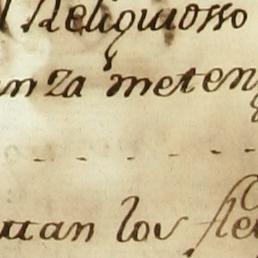 Religiuosso
nza meten
uan los fle